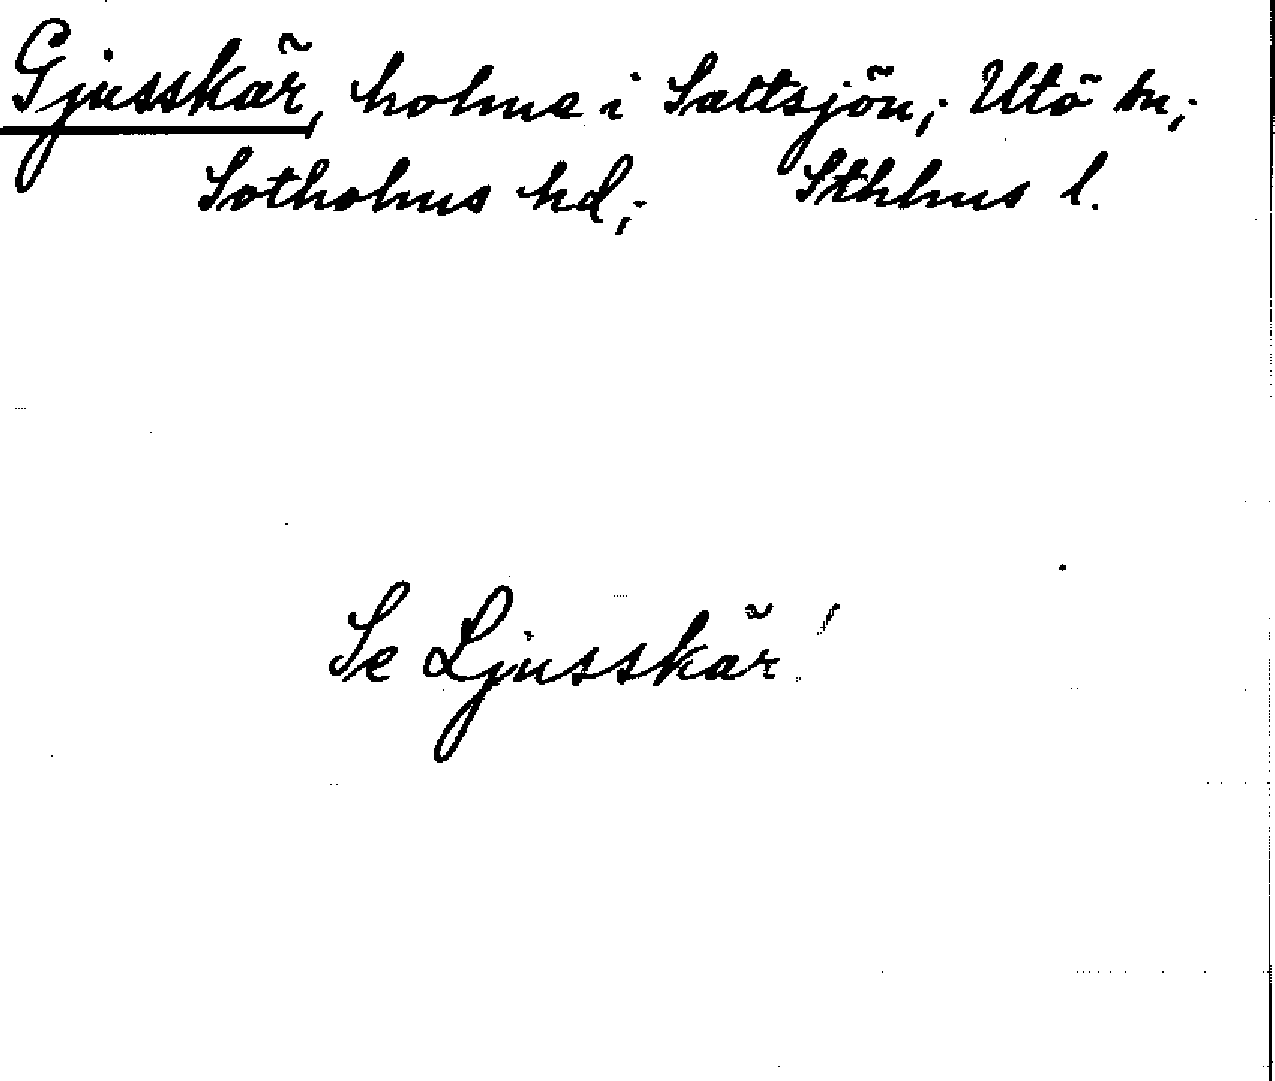 Gjusskär, holme i Saltsjön; Utö sn;
Sotholms hd; Sthlms l.
Se Ljusskär!